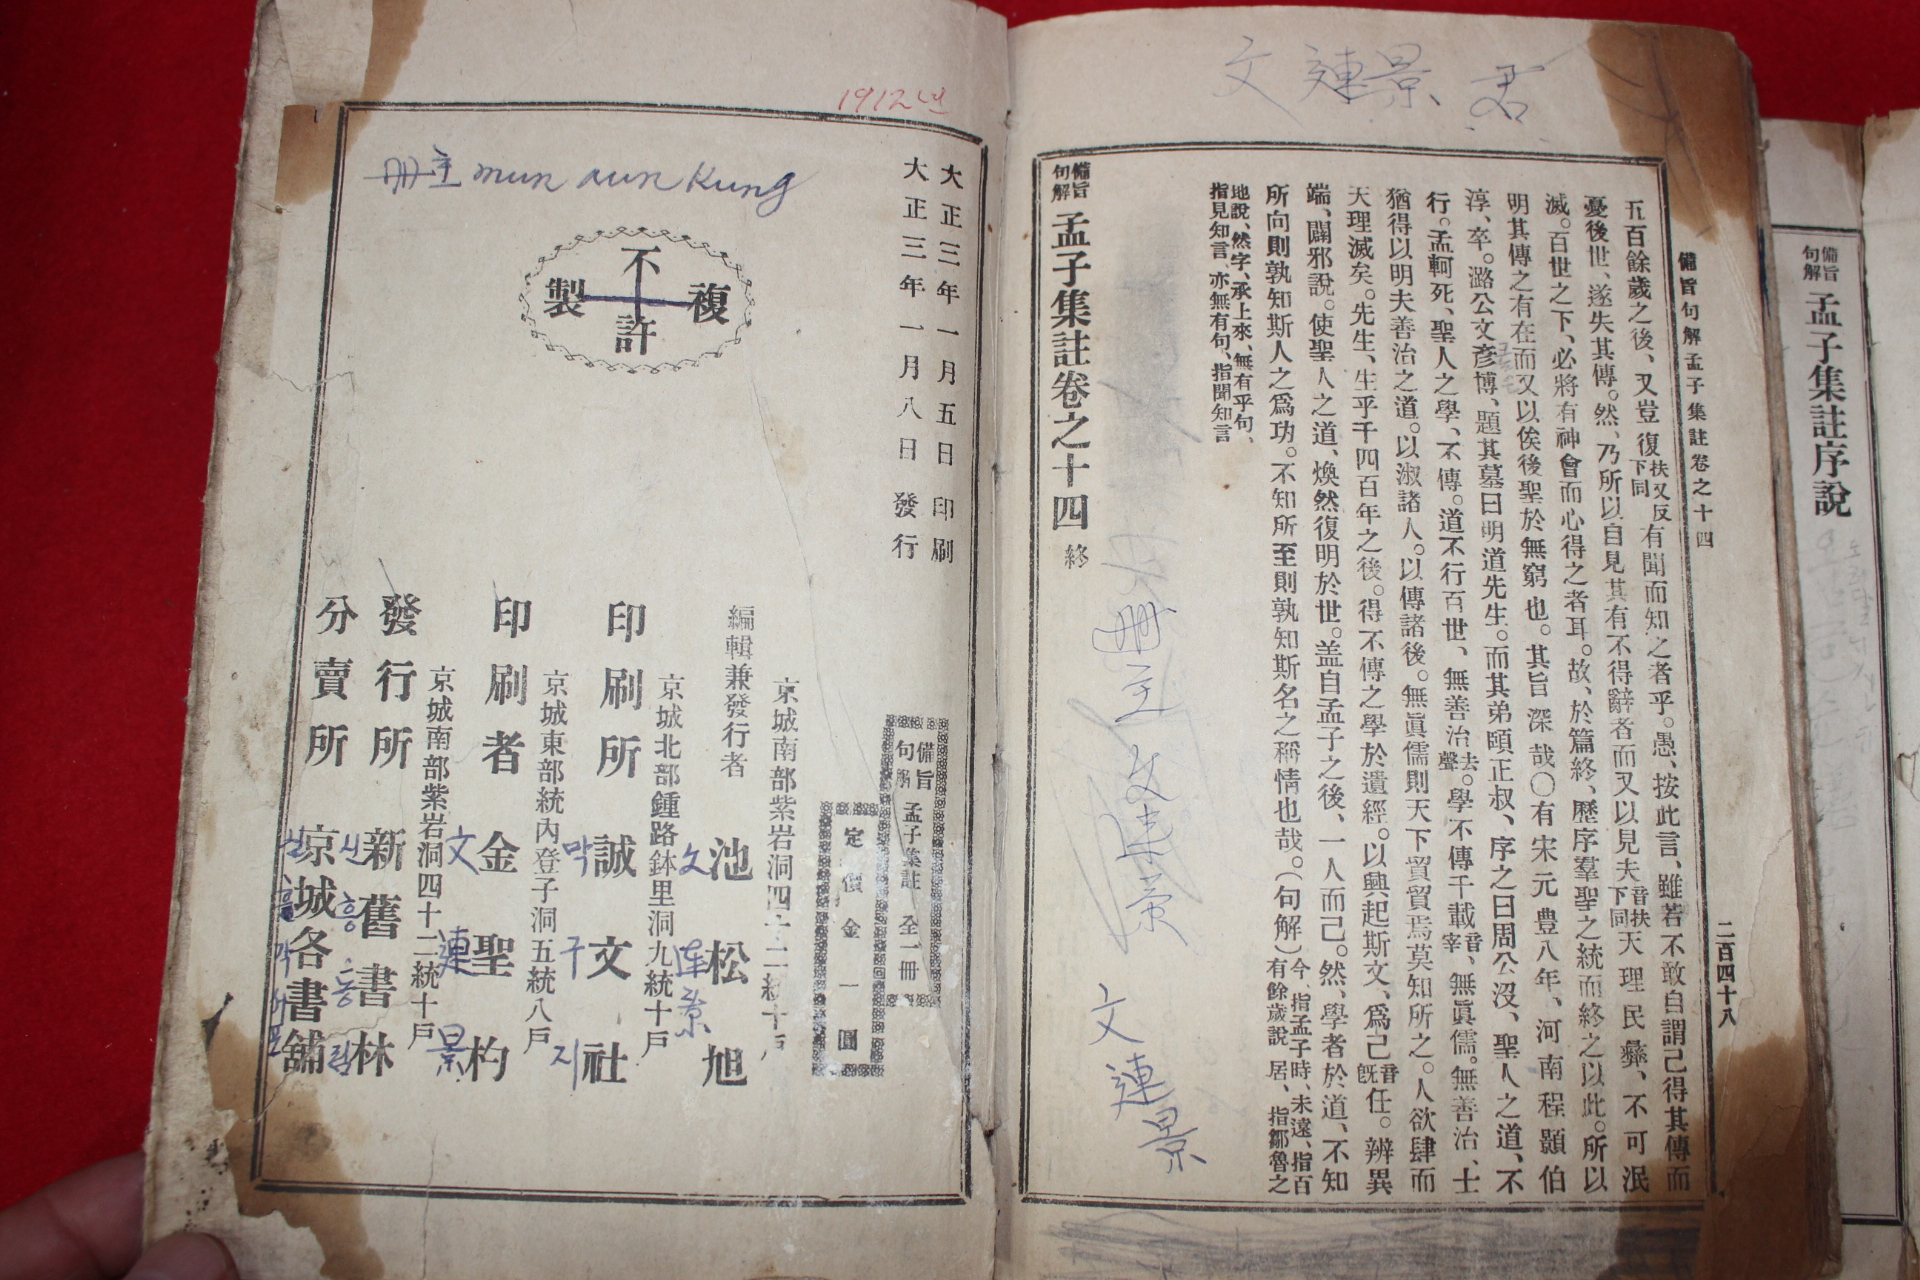 文連景 君
備旨句解孟子集註卷之十四
二百四十八
五百餘歲之後、又豈復扶又反下同有聞而知之者乎。愚、按此言、雖若不敢自謂己得其傳而
憂後世、遂失其傳。然、乃所以自見其有不得辭者而又以見夫音扶下同天理民彝、不可泯
滅。百世之下、必將有神會而心得之者耳。故、於篇終、歷序羣聖之統而終之以此。所以
明其傳之有在而又以俟後聖於無窮也。其旨深哉〇有宋元豊八年、河南程顥伯
淳、卒。潞公文彥博、題其墓曰明道先生。而其弟頤正叔、序之曰周公沒、聖人之道、不
行。孟軻死、聖人之學、不傳。道不行百世、無善治去聲。學不傳千載音宰、無眞儒。無善治、士
猶得以明夫善治之道。以淑諸人。以傳諸後。無眞儒則天下貿貿焉莫知所之。人欲肆而
天理滅矣。先生、生乎千四百年之後。得不傳之學於遺經。以興起斯文、爲己音旣任。辨異
端、闢邪說。使聖人之道、煥然復明於世。盖自孟子之後、一人而己。然、學者於道、不知
所向則孰知斯人之爲功。不知所至則孰知斯名之稱情也哉。（句解）今、指孟子時、未遠、指百有餘歲說 居、指鄒魯之
地說、然字、承上來、無有乎句、
指見知言、亦無有句、指聞知言
備旨句解 孟子集註卷之十四 終
冊主 文連景
文連景
1912년
冊主 mun aun Kung
大正三年一月五日印刷
大正三年一月八日發行
不許複製
備旨句解 孟子集註 全一冊
定價金一圓
京城南部紫岩洞四十二統十戶
編輯兼發行者 池松旭
京城北部鍾路鉢里洞九統十戶
印刷所 誠文社
京城東部統內登子洞五統八戶
印刷者 金聖杓
京城南部紫岩洞四十二統十戶
發行所 新舊書林
分賣所 京城各書舖
文連景
막구지
文連景
備旨句解 孟子集註序說